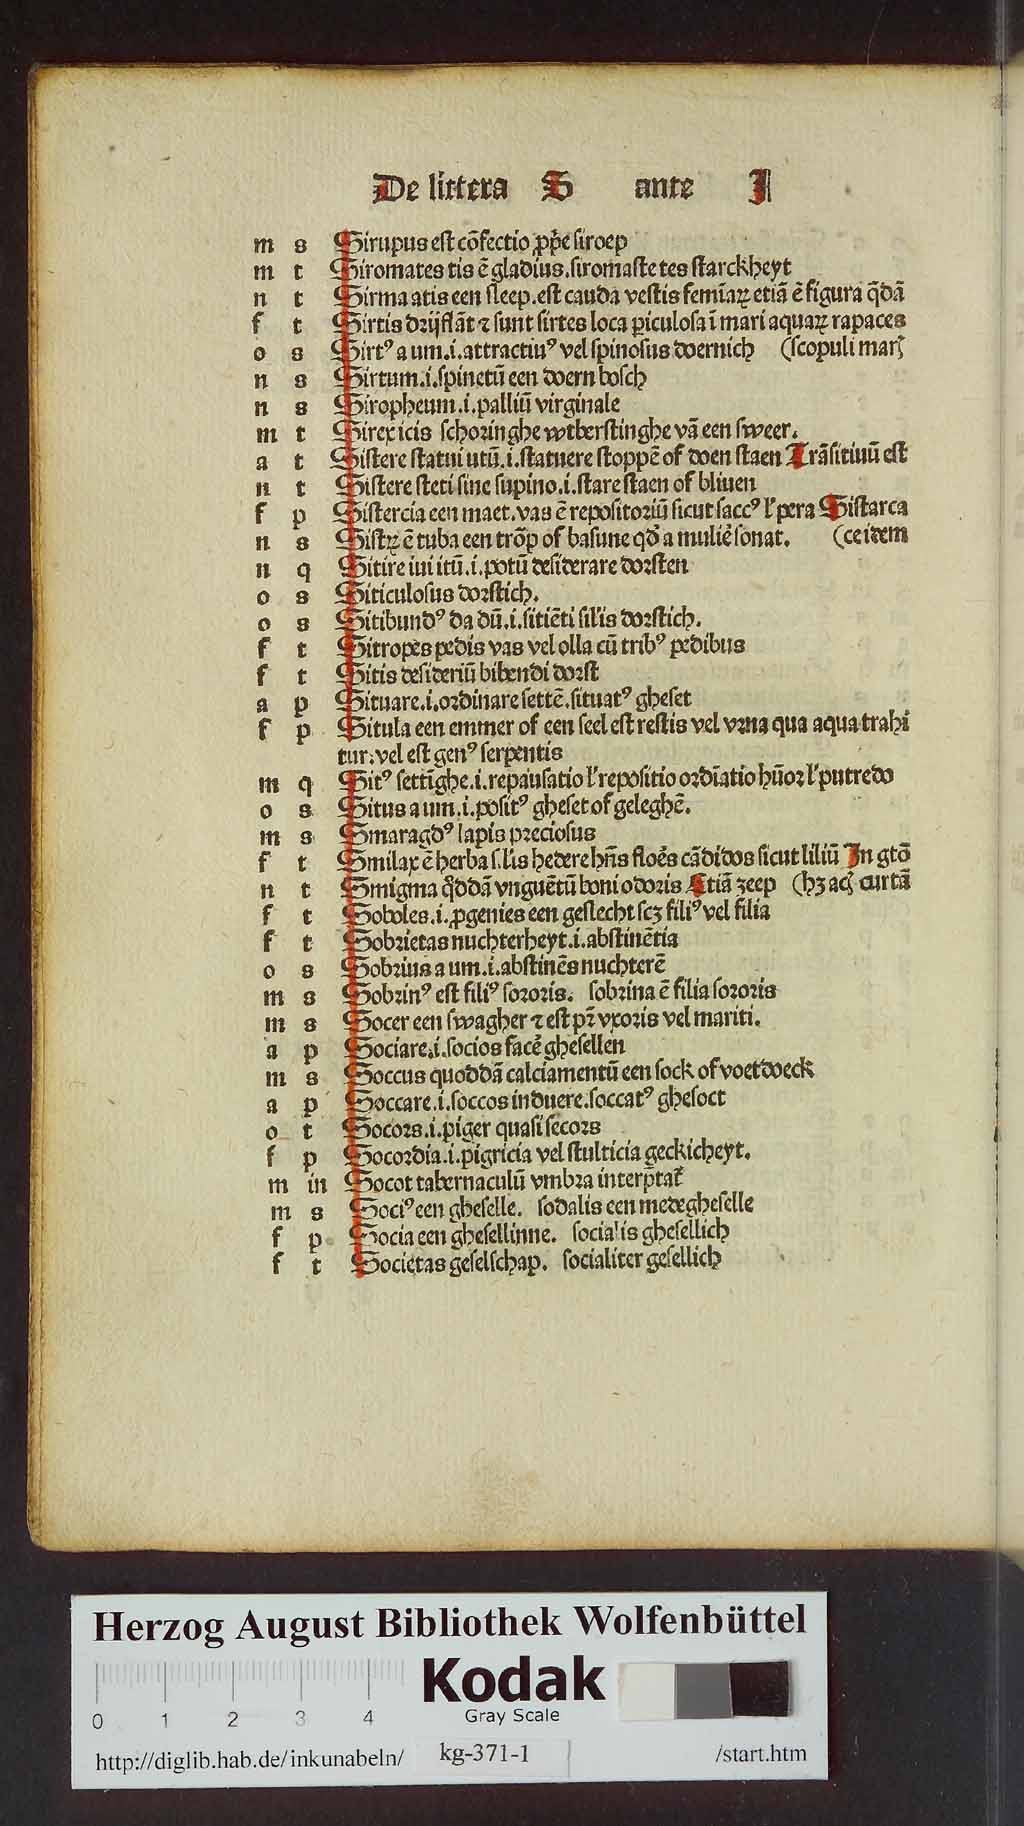 De littera S ante I
m s Sirupus est cōfectio ꝓpꝛe siroep
m t Siromates tis ē gladius. siromaste tes starckheyt
n t Sirma atis een sleep. est cauda vestis femīaꝝ etiā ē figura q̄dā
f t Sirtis drijflāt ⁊ sunt sirtes loca ꝑiculosa ī mari aquaꝝ rapaces
o s Sirtꝰ a um .i. attractiuꝰ vel spinosus doernich (scopuli marꝭ
n s Sirtum .i. spinetū een doern bosch
n s Siropheum .i. palliū virginale
m t Sirex icis schoringhe wtberstinghe vā een sweer.
a t Sistere statui utū .i. statuere stoppē of doen staen Trāsitiuū est
n t Sistere steti sine supino .i. stare staen of bliuen
f p Sistercia een maet. vas ē repositoriū sicut saccꝰ l' pera Sistarca
n s Sistꝝ ē tuba een trōp of basune qd̄ a muliē sonat. (ce idem
n q Sitire iui itū .i. potū desiderare dorsten
o s Siticulosus dorstich.
o s Sitibundꝰ da dū .i. sitiēti sil'is dorstich.
f t Sitropes pedis vas vel olla cū tribꝰ pedibus
f t Sitis desideriū bibendi dorst
a p Situare .i. ordinare settē. situatꝰ gheset
f p Situla een emmer of een seel est restis vel vrna qua aqua trahi
tur: vel est genꝰ serpentis
m q Sitꝰ settīghe .i. repausatio l' repositio ordīatio hūor l' putredo
o s Situs a um .i. positꝰ gheset of geleghē.
m s Smaragdꝰ lapis preciosus
f t Smilax ē herba s.lis hedere hn̄s floēs cādidos sicut liliū In gtō
n t Smigma qd̄dā vnguētū boni odoris Etiā zeep (hʒ acꝭ curtā
f t Soboles .i. ꝓgenies een geslecht scʒ filiꝰ vel filia
f t Sobrietas nuchterheyt .i. abstinētia
o s Sobrius a um .i. abstinēs nuchterē
m s Sobrinꝰ est filiꝰ sororis. sobrina ē filia sororis
m s Socer een swagher ⁊ est pr̄ vxoris vel mariti.
a p Sociare .i. socios facē ghesellen
m s Soccus quoddā calciamentū een sock of voetdoeck
a p Soccare .i. soccos induere. soccatꝰ ghesoct
o t Socors .i. piger quasi secors
f p Socordia .i. pigricia vel stulticia geckicheyt.
m in Socot tabernaculū vmbra interp̄tat̄
m s Sociꝰ een gheselle. sodalis een medegheselle
f p Socia een ghesellinne. socialis ghesellich
f t Societas geselschap. socialiter gesellich
Herzog August Bibliothek Wolfenbüttel
Kodak
Gray Scale
0 1 2 3 4
http://diglib.hab.de/inkunabeln/ kg-371-1 /start.htm